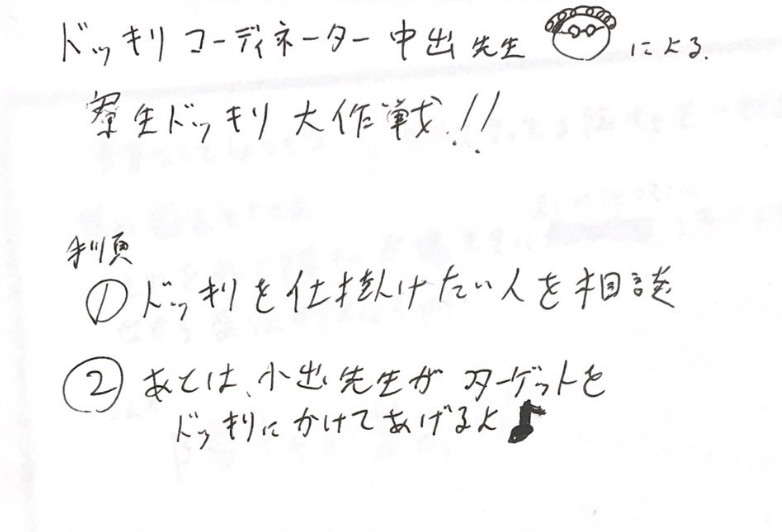 ドッキリコーディネーター中出先生 による.
寮生ドッキリ大作戦!!
手順
① ドッキリを仕掛けたい人を相談
② あとは、小出先生がターゲットを
ドッキリにかけてあげるよ♪